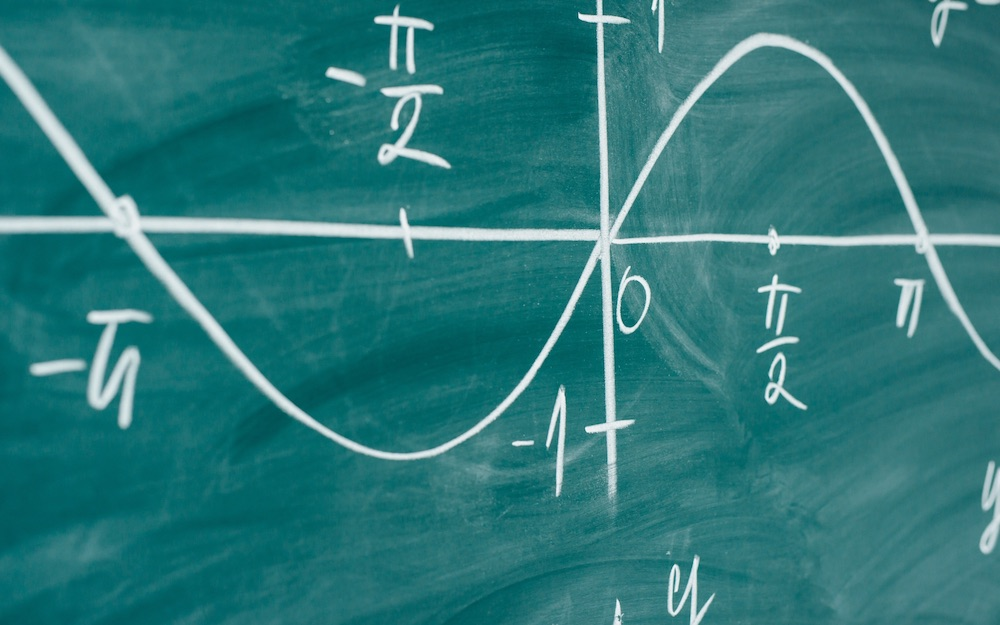 -π/2
1
-π
0
π/2
π
-1
y
y